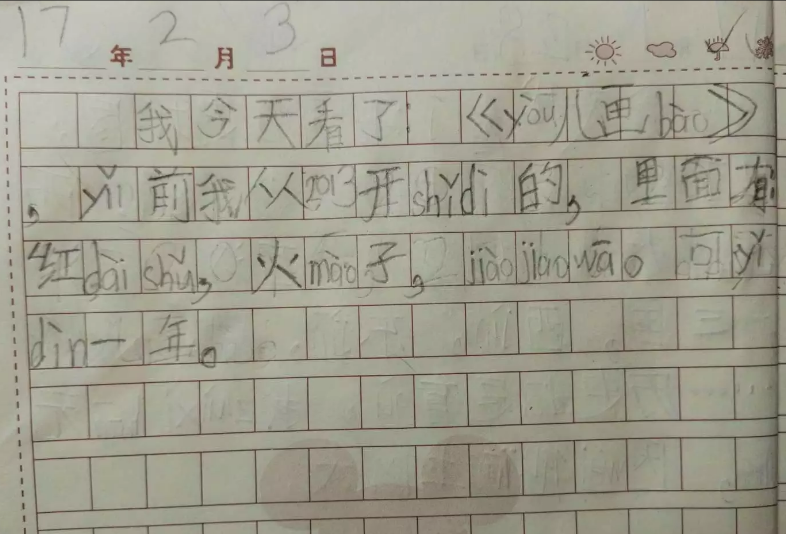 17年2月3日
我今天看了:《yòu儿画bào》
,yǐ前我从2013开shǐdì的,里面有
红dài shǔ,火mào子,jiào jiao wā。可yǐ
dìn一年。